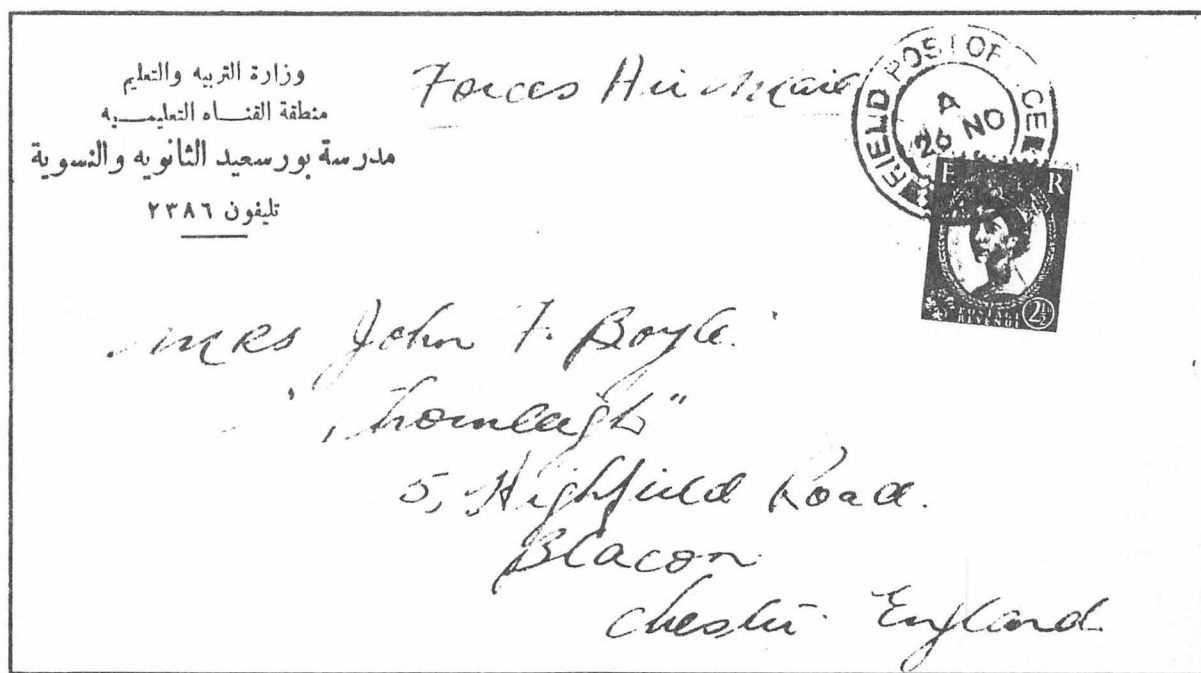 وزارة التربيه والتعليم
منطقة القنـــاه التعليمـــيه
مدرسة بورسعيد الثانويه والنسوية
تليفون ٢٣٨٦
Forces Air Mail
FIELD POST OFFICE
A
26 NO
E R
POSTAGE
REVENUE
2½
MRS John F. Boyle.
"Thornleigh"
5, Highfield Road.
Blacon
Chester England.